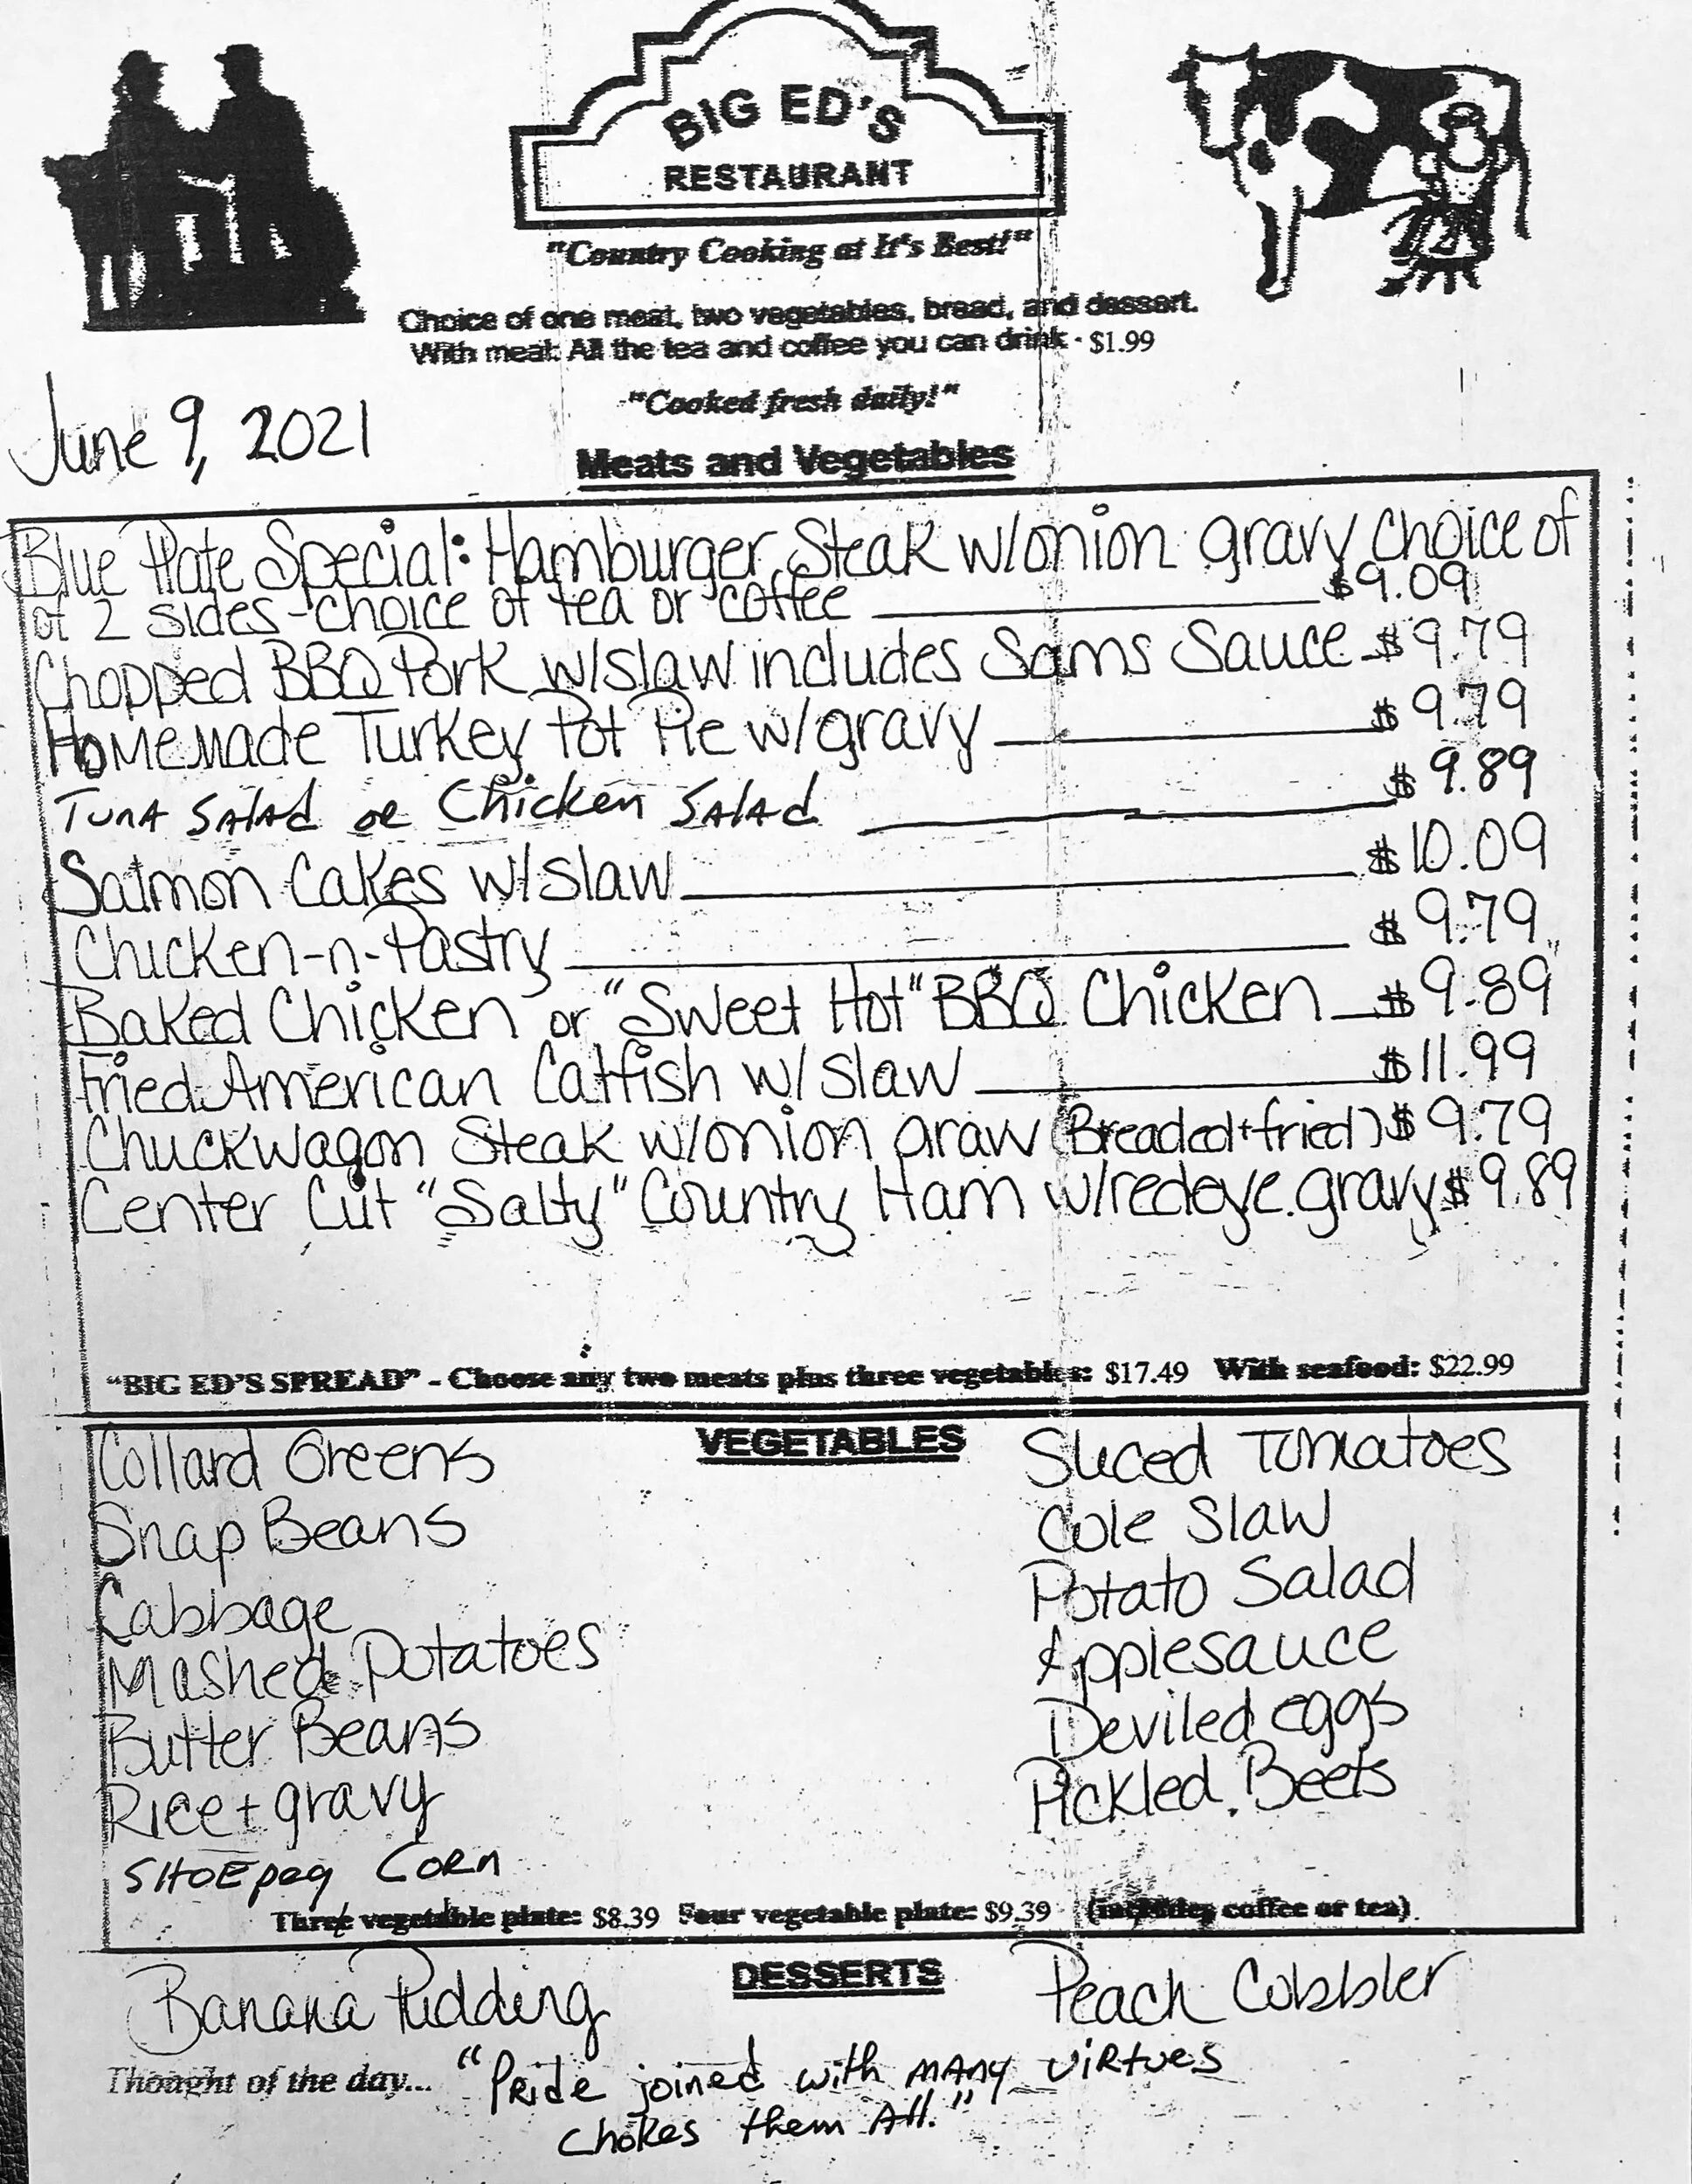 BIG ED'S
RESTAURANT
"Country Cooking at It's Best!"
Choice of one meat, two vegetables, bread, and dessert.
With meal: All the tea and coffee you can drink - $1.99
"Cooked fresh daily!"
June 9, 2021
Meats and Vegetables
Blue Plate Special: Hamburger Steak w/onion gravy choice of
of 2 sides - choice of tea or coffee $9.09
Chopped BBQ Pork w/slaw includes Sams Sauce $9.79
Homemade Turkey Pot Pie w/gravy $9.79
Tuna Salad or Chicken Salad $9.89
Salmon Cakes w/slaw $10.09
Chicken-n-Pastry $9.79
Baked Chicken or "Sweet Hot" BBQ Chicken $9.89
Fried American Catfish w/slaw $11.99
Chuckwagon Steak w/onion gravy (Breaded+fried) $9.79
Center Cut "Salty" Country Ham w/redeye gravy $9.89
"BIG ED'S SPREAD" - Choose any two meats plus three vegetables: $17.49 With seafood: $22.99
VEGETABLES
Collard Greens
Snap Beans
Cabbage
Mashed Potatoes
Butter Beans
Rice + gravy
SHOEpeg CORN
Sliced Tomatoes
Cole Slaw
Potato Salad
Applesauce
Deviled eggs
Pickled Beets
Three vegetable plate: $8.39 Four vegetable plate: $9.39 (includes coffee or tea)
DESSERTS
Banana Pudding
Peach Cobbler
Thought of the day... "Pride joined with many virtues
chokes them All."